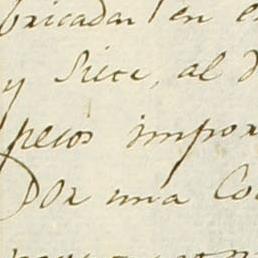 bricadas en e
y siete, al d
pesos impor
Por una Co